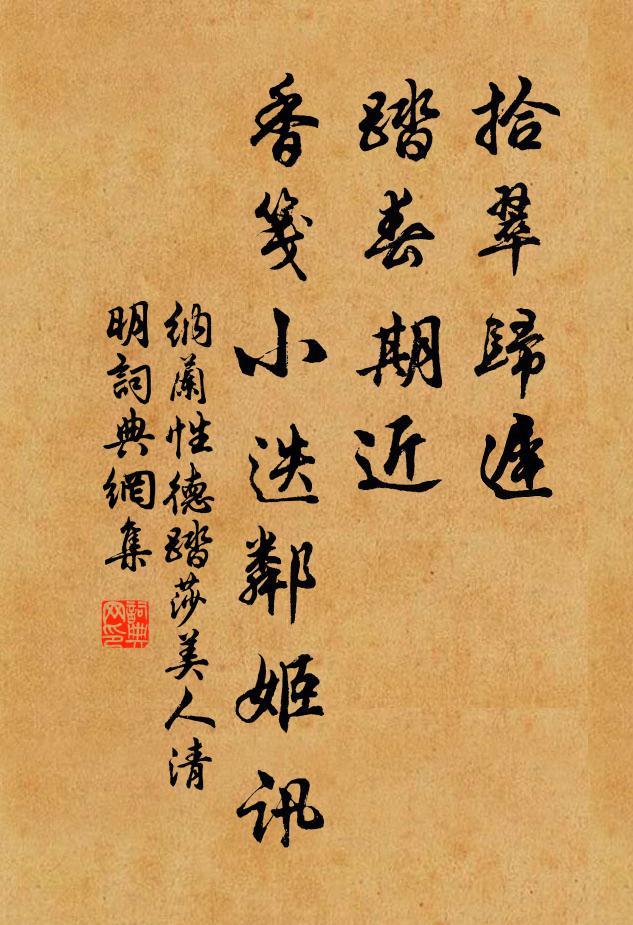 拾翠歸遲
踏春期近
香箋小迭鄰姬訊
納蘭性德踏莎美人清
明詞典網集
詞典
网印